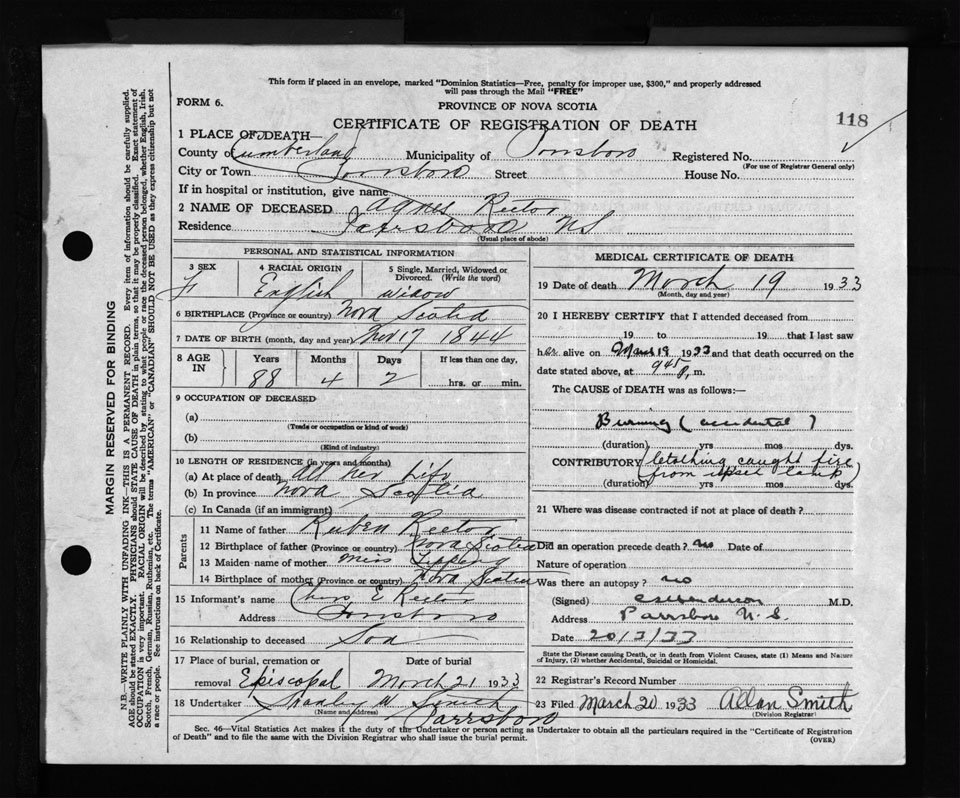 This form if placed in an envelope, marked "Dominion Statistics—Free, penalty for improper use, $300," and properly addressed
will pass through the Mail "FREE"
FORM 6.
PROVINCE OF NOVA SCOTIA
CERTIFICATE OF REGISTRATION OF DEATH
118
1 PLACE OF DEATH—
County of Cumberland Municipality of Parrsboro Registered No.
(For use of Registrar General only)
City or Town Parrsboro Street House No.
If in hospital or institution, give name
2 NAME OF DECEASED Agnes Rector
Residence Parrsboro NS
(Usual place of abode)
PERSONAL AND STATISTICAL INFORMATION
3 SEX 4 RACIAL ORIGIN 5 Single, Married, Widowed or Divorced. (Write the word)
F English widow
6 BIRTHPLACE (Province or country) Nova Scotia
7 DATE OF BIRTH (month, day and year) Nov 17 1844
8 AGE IN Years Months Days If less than one day,
88 4 2 hrs. or min.
9 OCCUPATION OF DECEASED
(a)
(Trade or occupation or kind of work)
(b)
(Kind of industry)
10 LENGTH OF RESIDENCE (in years and months)
(a) At place of death All her life
(b) In province Nova Scotia
(c) In Canada (if an immigrant)
Parents
11 Name of father Ruben Rector
12 Birthplace of father (Province or country) Nova Scotia
13 Maiden name of mother Miss
14 Birthplace of mother (Province or country) Nova Scotia
15 Informant's name Chas E Rector
Address Parrsboro
16 Relationship to deceased Son
17 Place of burial, cremation or Date of burial
removal Episcopal March 21 1933
18 Undertaker Stanley W Smith
(Name and address) Parrsboro
MEDICAL CERTIFICATE OF DEATH
19 Date of death March 19 1933
(Month, day and year)
20 I HEREBY CERTIFY that I attended deceased from
19 to 19 that I last saw
her alive on March 19 1933 and that death occurred on the
date stated above, at 945 p. m.
The CAUSE of DEATH was as follows:—
Burning (accidental)
(duration) yrs mos dys.
CONTRIBUTORY (clothing caught fire
(duration) from upset lamp) yrs mos dys.
21 Where was disease contracted if not at place of death?
Did an operation precede death? no Date of
Nature of operation
Was there an autopsy? no
(Signed) M.D.
Address Parrsboro N.S.
Date 20/3/33
State the Disease causing Death, or in death from Violent Causes, state (1) Means and Nature
of Injury, (2) whether Accidental, Suicidal or Homicidal.
22 Registrar's Record Number
23 Filed March 20 1933 Allan Smith
(Division Registrar)
Sec. 46—Vital Statistics Act makes it the duty of the Undertaker or person acting as Undertaker to obtain all the particulars required in the "Certificate of Registration
of Death" and to file the same with the Division Registrar who shall issue the burial permit.
(OVER)
MARGIN RESERVED FOR BINDING
N.B.—WRITE PLAINLY WITH UNFADING INK—THIS IS A PERMANENT RECORD. Every item of information should be carefully supplied.
AGE should be stated EXACTLY. PHYSICIANS should STATE CAUSE OF DEATH in plain terms, so that it may be properly classified. Exact statement of
OCCUPATION is very important. RACIAL ORIGIN will be described by stating to what people or race the deceased person belonged, whether English, Irish,
Scotch, French, German, Russian, Ruthenian, etc. The terms "AMERICAN" or "CANADIAN" SHOULD NOT BE USED as they express citizenship but not
a race or people. See instructions on back of Certificate.